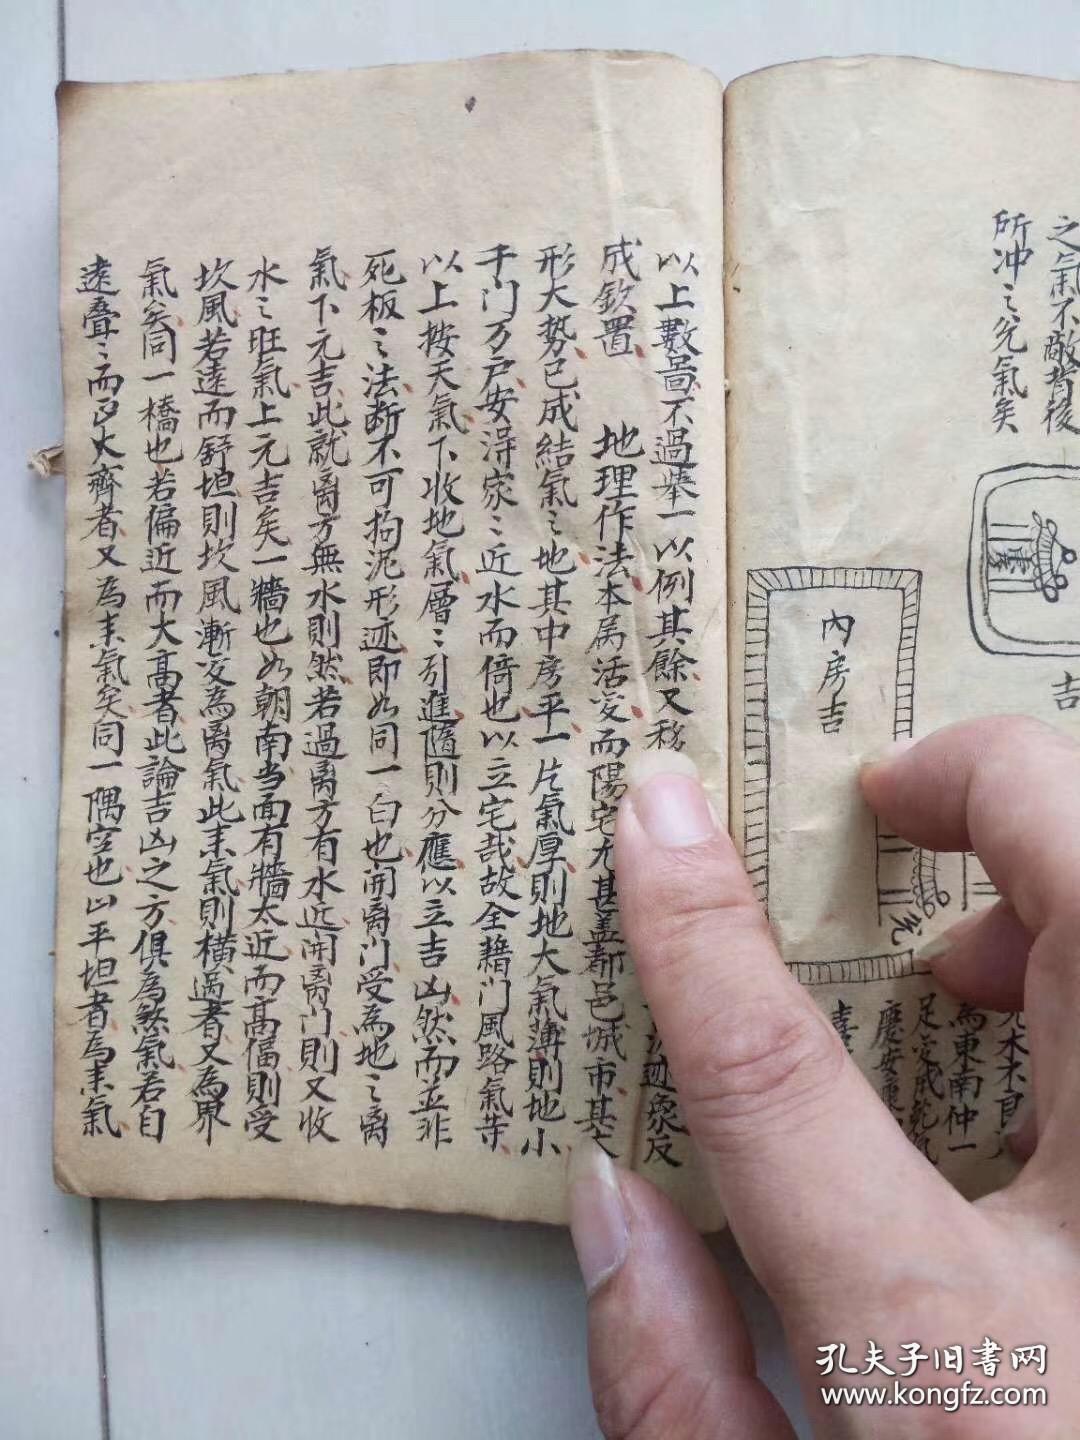 之氣不敵背後
所冲之兇氣矣
吉
内房吉
為東南仲一
慶安康
以上數啚不過舉一以例其餘又務
迹象反
成欽置　地理作法本属活变而陽宅尤甚盖都邑城市其大
形大勢已成結氣之地其中房平一片氣厚則地大氣薄則地小
千门万户安得家〻近水而倚也以立宅哉故全藉门風路氣等
以上按天氣下收地氣層〻引進隨則分應以立吉凶然而並非
死板之法断不可拘泥形迹即如同一白也開离门受為地之离
氣下元吉此就离方無水則然若過离方有水近開离门則又收
水之旺氣上元吉矣一牆也如朝南当面有牆太近而高偪則受
坎風若遠而舒坦則坎風漸变為离氣此耒氣則横過者又為界
氣矣同一橋也若偏近而大高者此論吉凶之方俱為煞氣若自
遠叠〻而齊者又為耒氣矣同一隅空也山平坦者為耒氣
孔夫子旧書网
www.kongfz.com